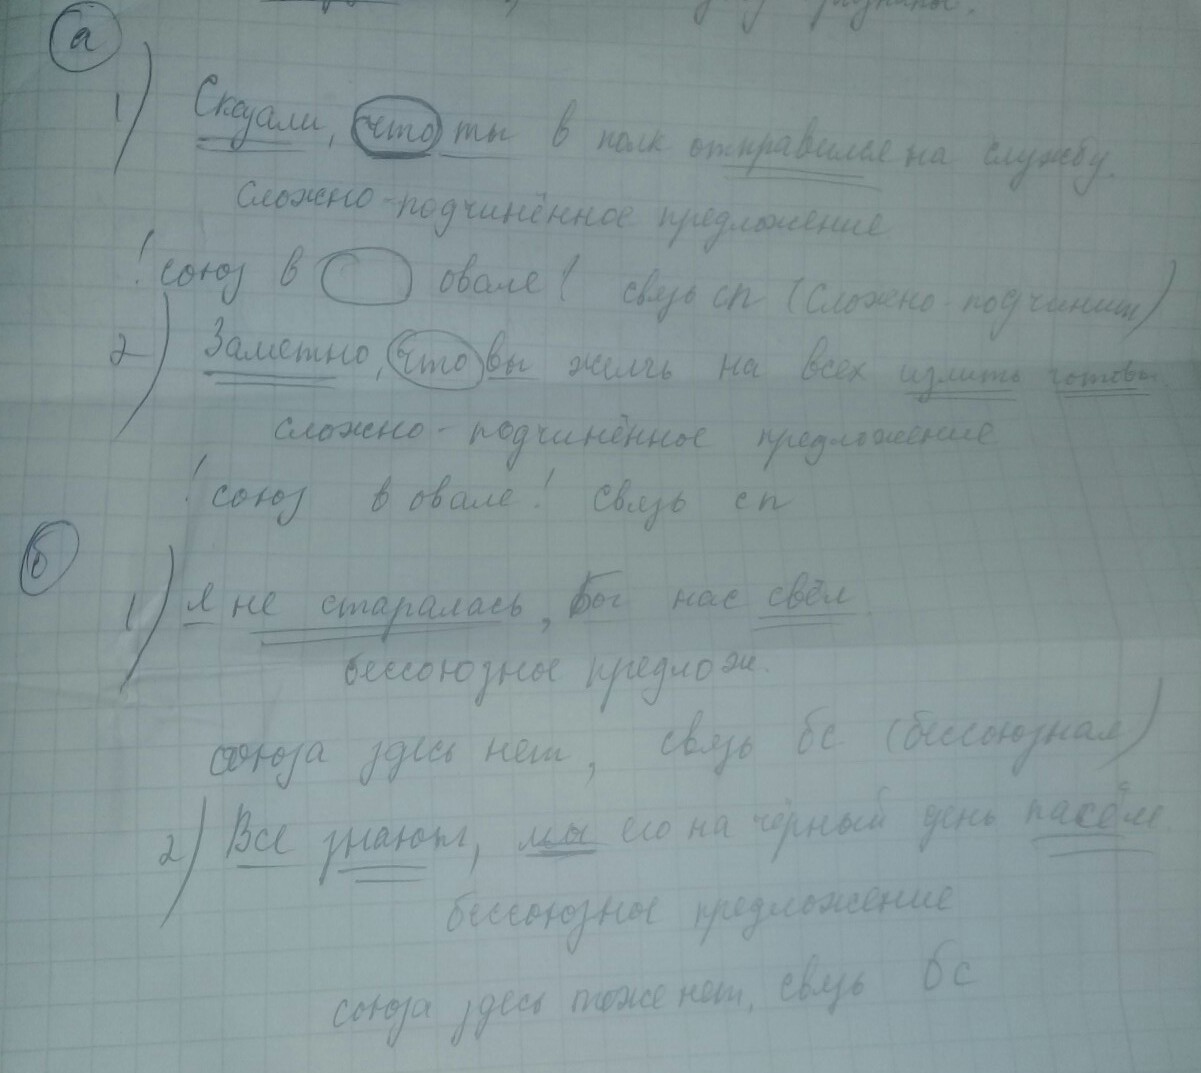 а
1) Сказали, что ты в полк отправился на службу.
сложно-подчинённое предложение
! союз в овале! связь сп (сложно-подчинит)
2) Заметно, что вы желчь на всех излить готовы.
сложно-подчинённое предложение
! союз в овале! связь сп
б
1) Я не старалась, Бог нас свёл
бессоюзное предлож.
союза здесь нет, связь бс (бессоюзная)
2) Все знают, мы его на чёрный день пасём
бессоюзное предложение
союза здесь тоже нет, связь бс